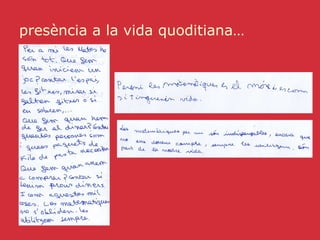 presència a la vida quoditiana…
Per a mi les Mates ho
són tot. Que fem
quan iniciem un
joc? contar l'espai,
les fitxes, mirar si
falten fitxes o si
en sobren,...
Que fem quan hem
de fer el dinar? Contar
quantes persones som
i quans paquets de
Kilo de pasta necesito
Que fem quan anem
a comprar? Contar si
tenim prous diners
I com aquestes mil
coses. Les matematiques
no s'obliden, les
utilitzem sempre.
Per mi les matemàtiques és el món, és com
si tinguessin vida.
Les matemàtiques per mi són indispensables, encara que
no ens donem compte, sempre les utilitzem. Són
part de la nostra vida.